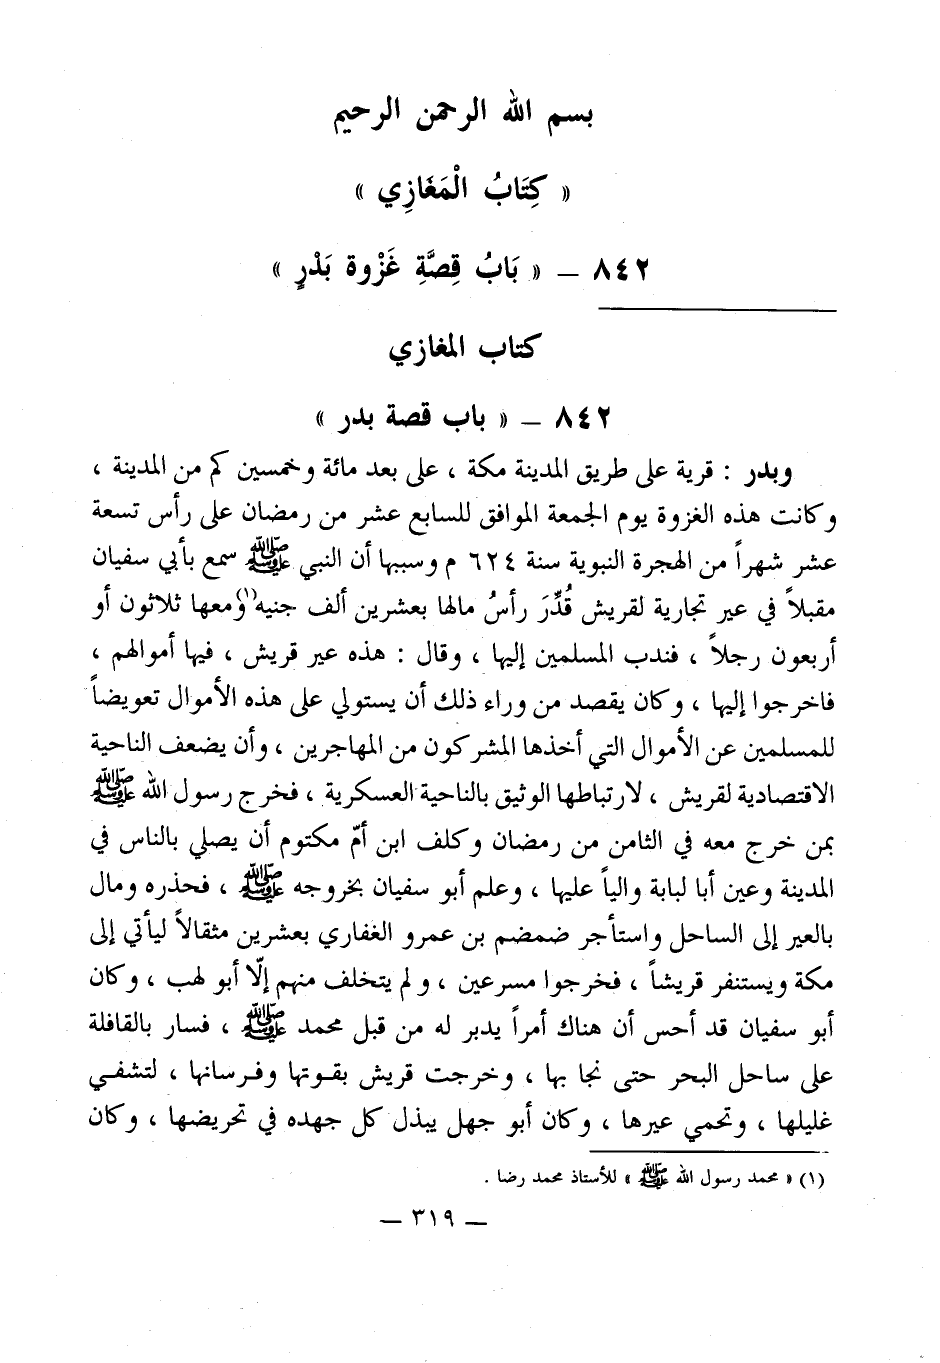 بسم الله الرحمن الرحيم
« كِتَابُ الْمَغَازِي »
٨٤٢ – « بَابُ قِصَّةِ غَزْوة بَدْرٍ »
كتاب المغازي
٨٤٢ – « باب قصة بدر »
وبدر : قرية على طريق المدينة مكة ، على بعد مائة وخمسين كم من المدينة ،
وكانت هذه الغزوة يوم الجمعة الموافق للسابع عشر من رمضان على رأس تسعة
عشر شهراً من الهجرة النبوية سنة ٦٢٤ م وسببها أن النبي ﷺ سمع بأبي سفيان
مقبلاً في عير تجارية لقريش قُدِّرَ رأسُ مالها بعشرين ألف جنيه(١) ومعها ثلاثون أو
أربعون رجلاً ، فندب المسلمين إليها ، وقال : هذه عير قريش ، فيها أموالهم ،
فاخرجوا إليها ، وكان يقصد من وراء ذلك أن يستولي على هذه الأموال تعويضاً
للمسلمين عن الأموال التي أخذها المشركون من المهاجرين ، وأن يضعف الناحية
الاقتصادية لقريش ، لارتباطها الوثيق بالناحية العسكرية ، فخرج رسول الله ﷺ
بمن خرج معه في الثامن من رمضان وكلف ابن أمّ مكتوم أن يصلي بالناس في
المدينة وعين أبا لبابة والياً عليها ، وعلم أبو سفيان بخروجه ﷺ ، فحذره ومال
بالعير إلى الساحل واستأجر ضمضم بن عمرو الغفاري بعشرين مثقالاً ليأتي إلى
مكة ويستنفر قريشاً ، فخرجوا مسرعين ، ولم يتخلف منهم إلّا أبو لهب ، وكان
أبو سفيان قد أحس أن هناك أمراً يدبر له من قبل محمد ﷺ ، فسار بالقافلة
على ساحل البحر حتى نجا بها ، وخرجت قريش بقوتها وفرسانها ، لتشفي
غليلها ، وتحمي عيرها ، وكان أبو جهل يبذل كل جهده في تحريضها ، وكان
(١) « محمد رسول الله ﷺ » للأستاذ محمد رضا .
– ٣١٩ –